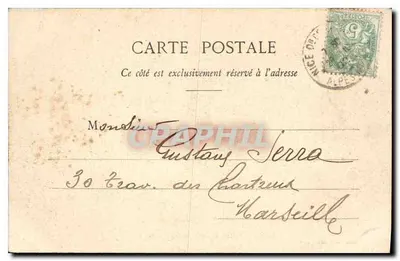 CARTE POSTALE
Ce côté est exclusivement réservé à l'adresse
NICE
ALPES
5
Monsieur
Gustave Serra
30 Trav. des Chartreux
Marseille
CPAPHIL